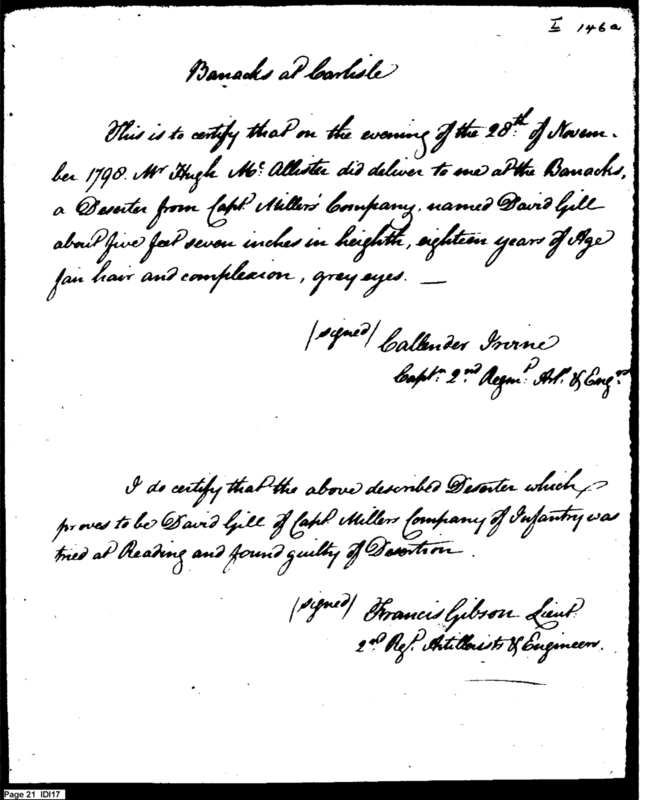 I 146a
Barracks at Carlisle
This is to certify that on the evening of the 28th of Novem-
ber 1798. Mr Hugh Mc Allister did deliver to me at the Barracks,
a Deserter from Capt. Millers' Company, named David Gill
about five feet seven inches in heighth, eighteen years of Age
fair hair and complexion, grey eyes. —
/signed/ Callender Irvine
Captn 2nd Regmt. Art. & Engrs
I do certify that the above described Deserter which
proves to be David Gill of Capt. Millers Company of Infantry was
tried at Reading and found guilty of Desertion.
/signed/ Francis Gibson Lieut.
2nd Regt. Artillerists & Engineers.
Page 21 IDI17